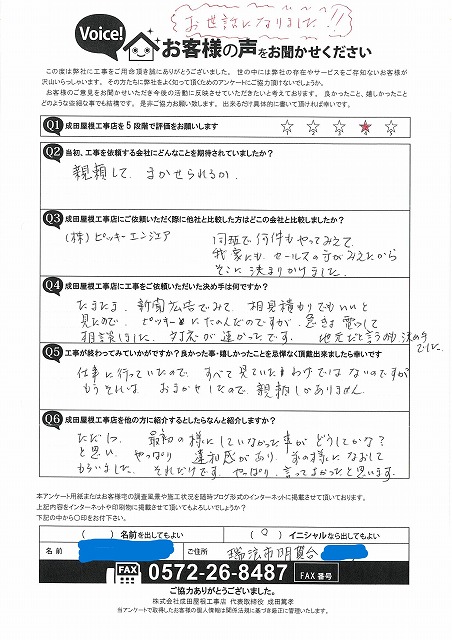 お世話になりました!!
Voice!
お客様の声をお聞かせください
この度は弊社に工事をご用命頂き誠にありがとうございました。世の中には弊社の存在やサービスをご存知ないお客様が
沢山いらっしゃいます。その方たちに弊社をよく知って頂くためのアンケートにご協力頂けないでしょうか。
お客様のご意見をお聞かせいただき今後の活動に反映させていただきたいと考えております。良かったこと、嬉しかったこと
どのような些細な事でも結構です。是非ご協力お願い致します。出来るだけ具体的に書いて頂ければ幸いです。
Q1 成田屋根工事店を5段階で評価をお願いします
1 2 3 4 5
Q2 当初、工事を依頼する会社にどんなことを期待されていましたか?
親頼して、まかせられるか、
Q3 成田屋根工事店にご依頼いただく際に他社と比較した方はどこの会社と比較しましたか?
(株)ピッキーエンジェア 同班で何件もやってみえて、
我家にも、セールスの方がみえたから
そこに決まりかけました。
Q4 成田屋根工事店に工事をご依頼いただいた決め手は何ですか?
たまたま、新聞広告でみて、相見積もりでもいいと
見たので、ピッキーにたのんだのですが、急きょ電話して
相談しました。対応が速かったです。地元だと言うのも決め手
でした。
Q5 工事が終わってみていかがですか?良かった事・嬉しかったことを忌憚なく頂戴出来ましたら幸いです
仕事に行っていたので、すべて見ていたわけではないのですが
もうそれは、おまかせしたので、親頼しかありません。
Q6 成田屋根工事店を他の方に紹介するとしたらなんと紹介しますか?
ただ1つ、最初の様にしていなかった事がどうしてかな?
と思い、やっぱり違和感があり、前の様になおして
もらいました。それだけです。やっぱり、言ってよかったと思います。
本アンケート用紙またはお客様宅の調査風景や施工状況を随時ブログ形式のインターネットに掲載させて頂いております。
上記内容をインターネットや印刷物に掲載させて頂いてもよろしいでしょうか?
下記の中から〇印をお付下さい。
( ) 名前を出してもよい (○) イニシャルなら出してもよい
名前 ご住所 瑞浪市明賀台
FAX 0572-26-8487 FAX 番号
ご協力ありがとうございました
株式会社成田屋根工事店 代表取締役 成田篤孝
当アンケートで取得したお客様の個人情報は関係法規に基づき厳正に管理いたします。